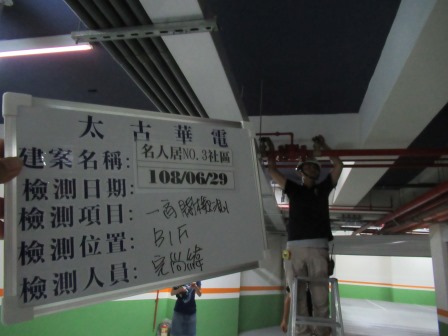 太古華電
建案名稱: 名人居NO.3社區
檢測日期: 108/06/29
檢測項目:
檢測位置: B1F
檢測人員: